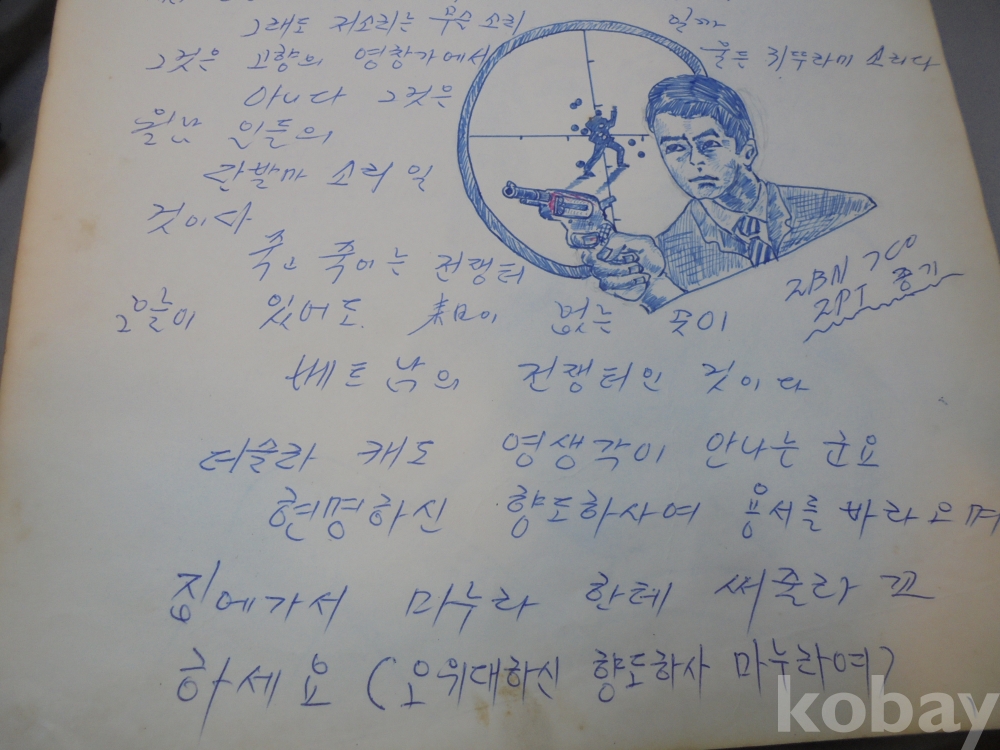 그래도 저소리는 무슨 소리 일까
그것은 고향의 영창가에서 울든 귀뚜라미 소리다
아니다 그것은
월남 인들의
단발마 소리 일
것이다
죽고 죽이는 전쟁터
오늘이 있어도 來日이 없는 곳이
베트남의 전쟁터인 것이다
더슬라 캐도 영생각이 안나는 군요
현명하신 향도하사여 용서를 바라오며
집에가서 마누라 한테 써줄라 꼬
하세요 (오 위대하신 향도하사 마누라여)
2BN 7CO
2PT 종기
kobay